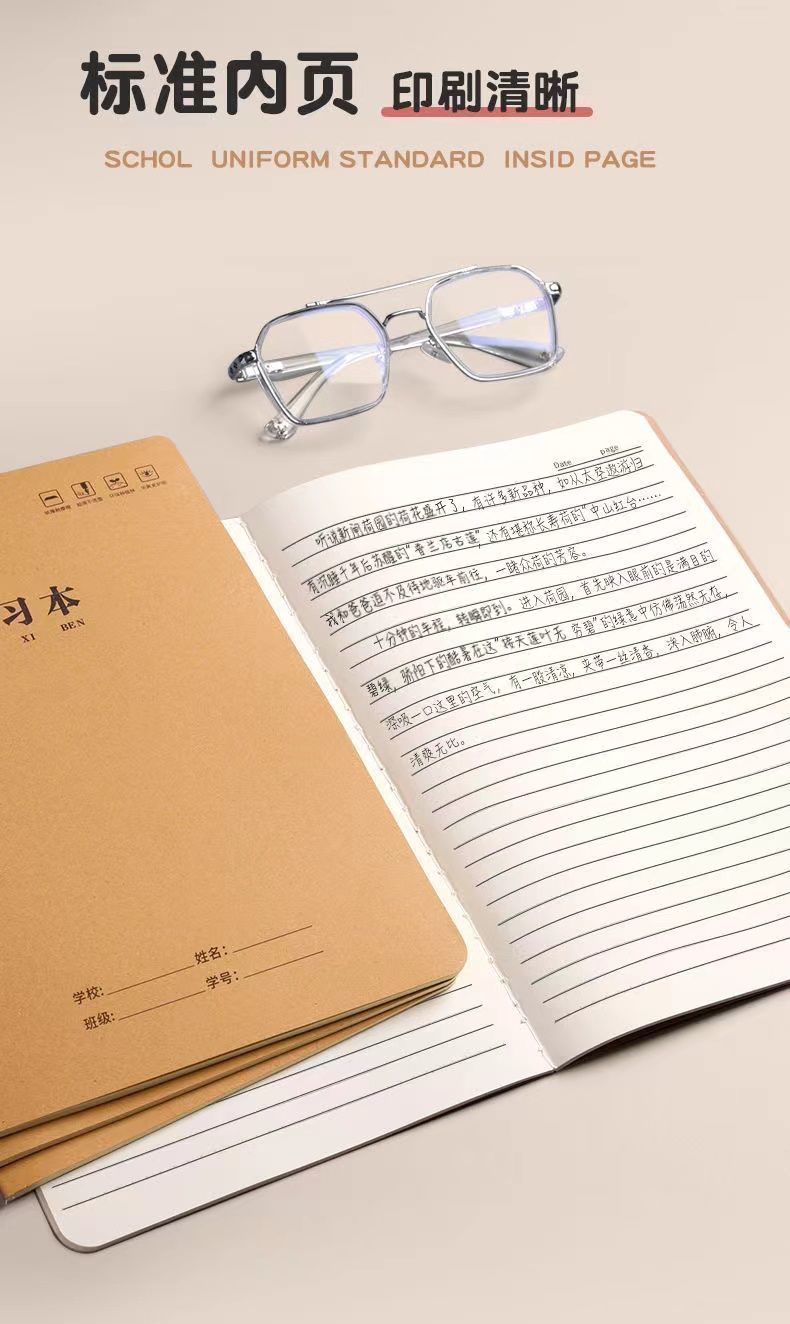 标准内页 印刷清晰
SCHOL UNIFORM STANDARD INSID PAGE
习本
XI BEN
姓名:
学校:
学号:
班级:
Date page
听说新闸荷园的荷花盛开了，有许多新品种，如从太空遨游归
有沉睡千年后苏醒的“普兰店古莲”还有堪称长寿荷的“中山红台……
我和爸爸迫不及待地驱车前往，一睹众荷的芳容。
十分钟的车程，转瞬即到。进入荷园，首先映入眼前的是满目的
碧绿，骄阳下的酷暑在这“接天莲叶无 穷碧”的绿意中仿佛荡然无存，
深吸一口这里的空气，有一股清凉，夹带一丝清香，深入肺腑，令人
清爽无比。